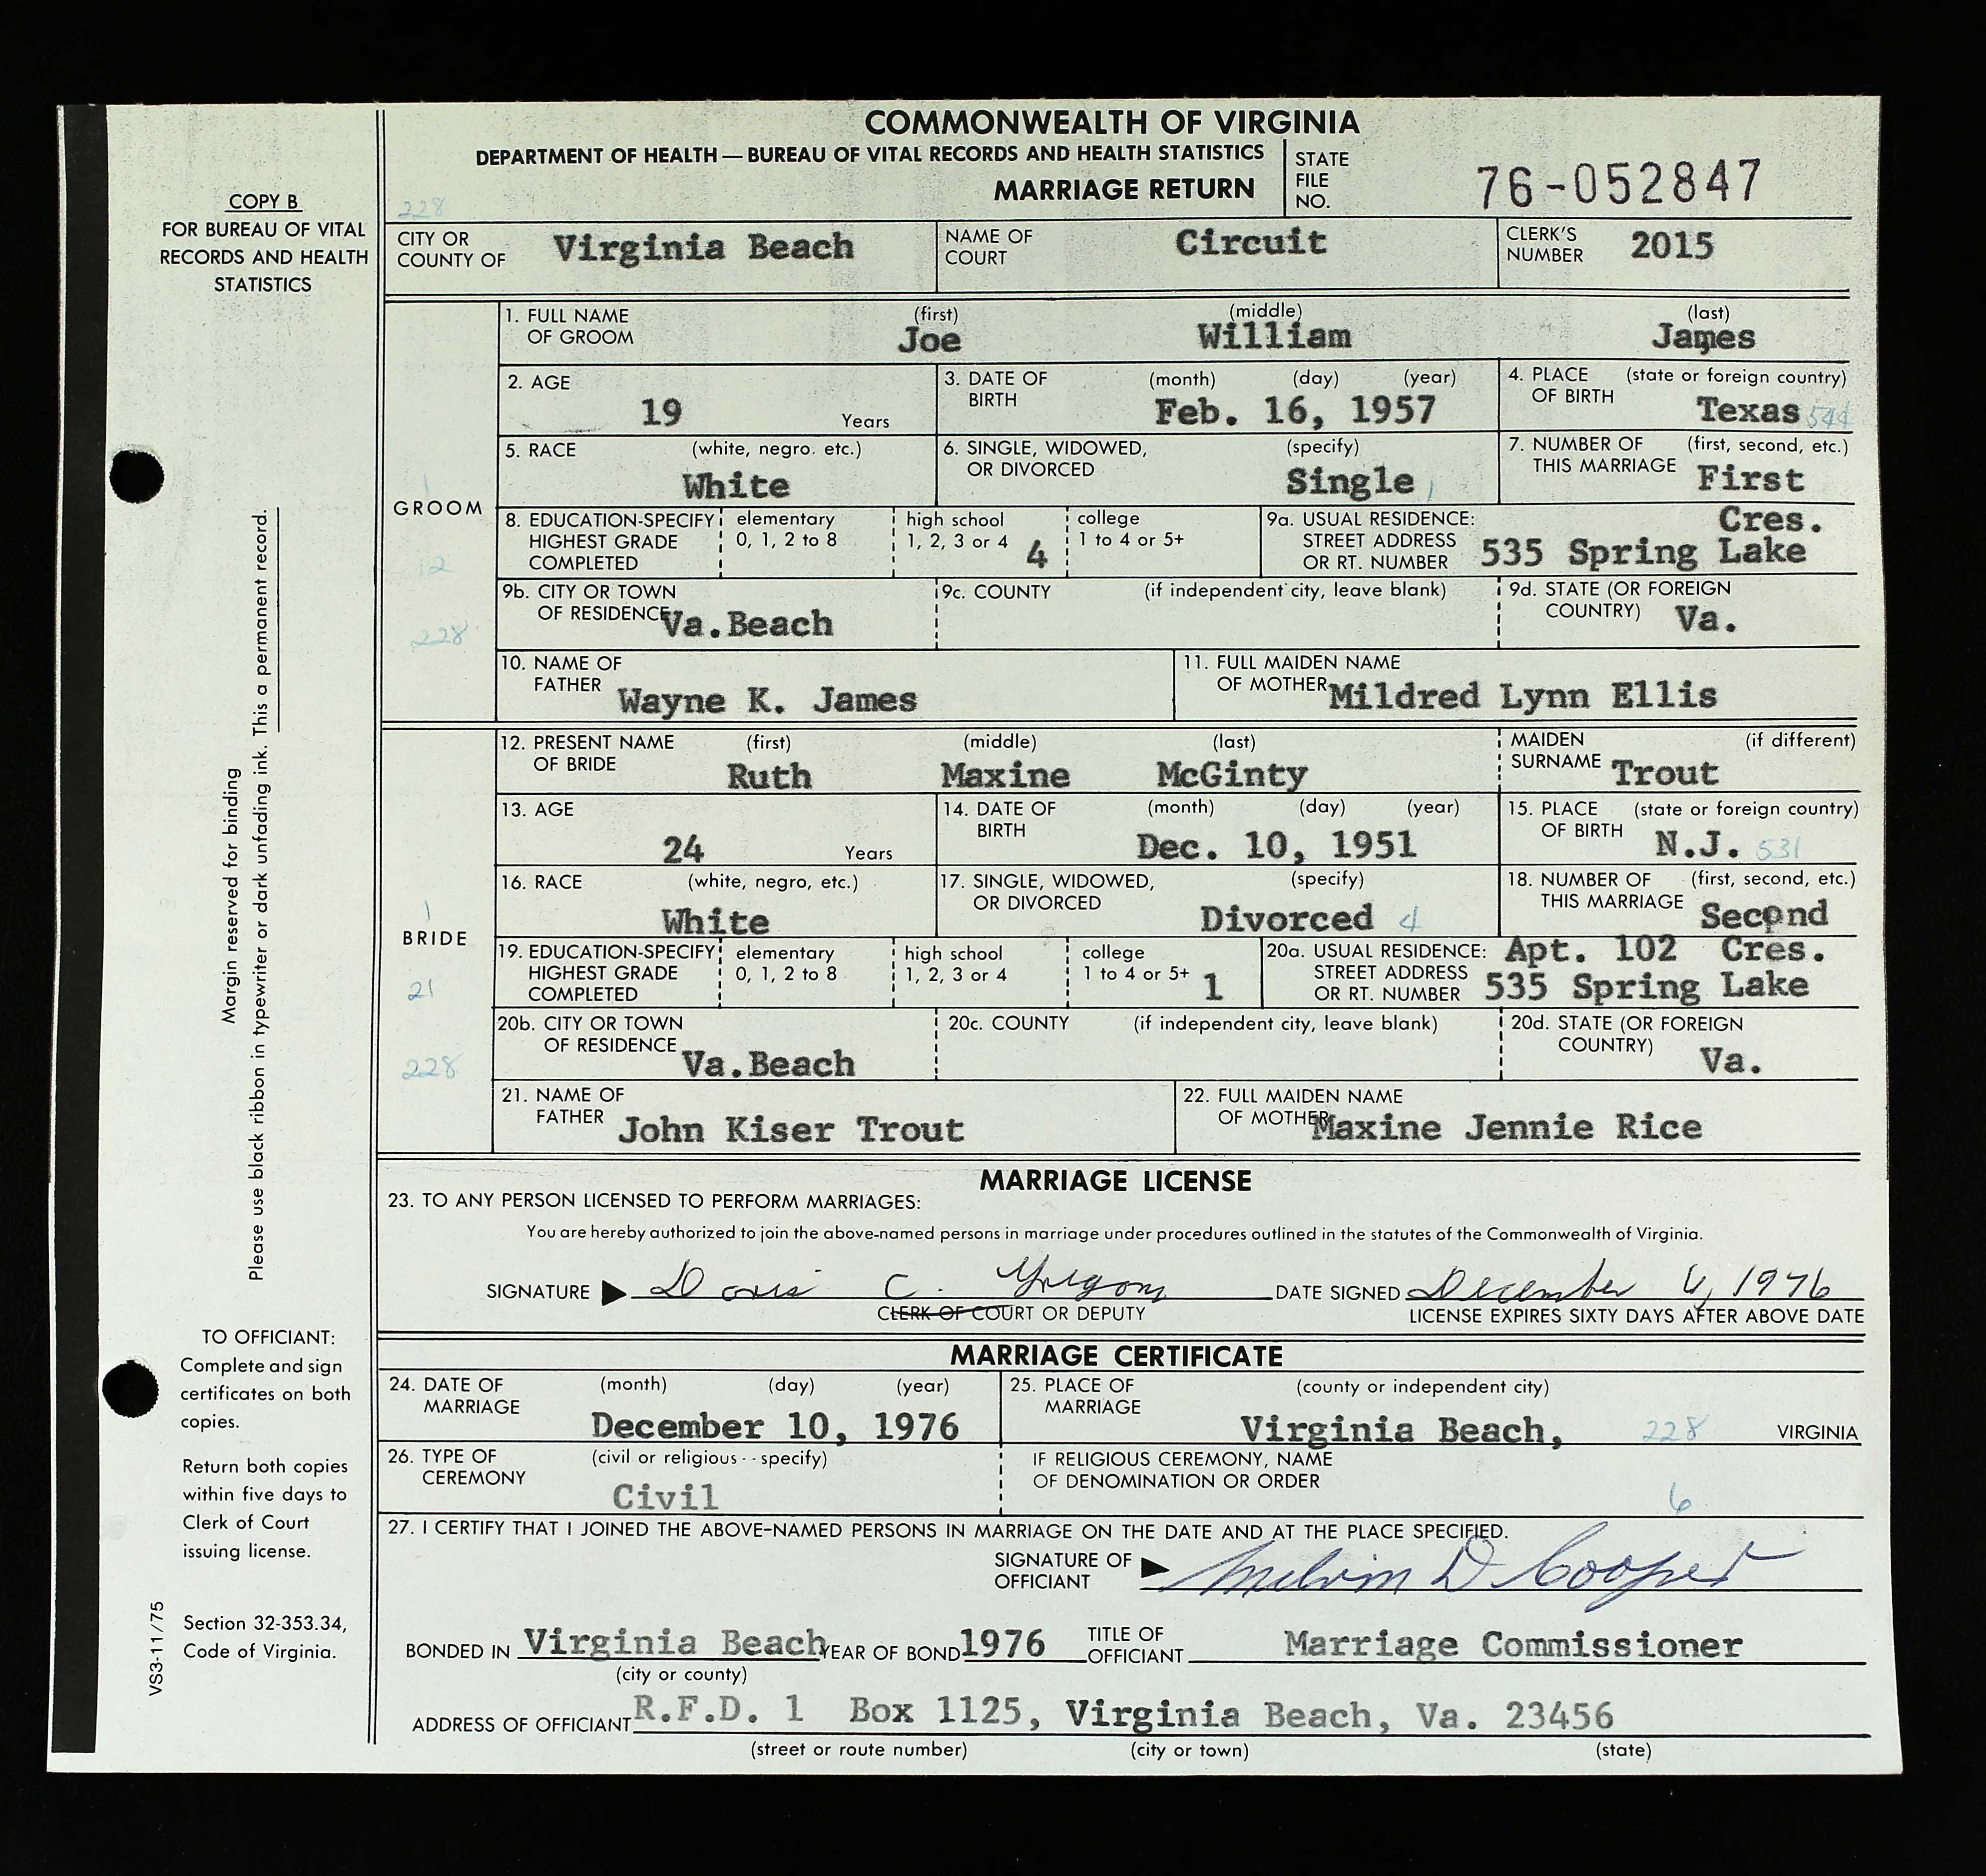 COMMONWEALTH OF VIRGINIA
DEPARTMENT OF HEALTH — BUREAU OF VITAL RECORDS AND HEALTH STATISTICS
MARRIAGE RETURN
STATE FILE NO. 76-052847
COPY B
FOR BUREAU OF VITAL
RECORDS AND HEALTH
STATISTICS
228
CITY OR COUNTY OF Virginia Beach
NAME OF COURT Circuit
CLERK'S NUMBER 2015
GROOM
1
12
228
1. FULL NAME OF GROOM (first) Joe (middle) William (last) James
2. AGE 19 Years
3. DATE OF BIRTH (month) (day) (year) Feb. 16, 1957
4. PLACE OF BIRTH (state or foreign country) Texas 544
5. RACE (white, negro. etc.) White
6. SINGLE, WIDOWED, OR DIVORCED (specify) Single 1
7. NUMBER OF THIS MARRIAGE (first, second, etc.) First
8. EDUCATION-SPECIFY HIGHEST GRADE COMPLETED elementary 0, 1, 2 to 8 high school 1, 2, 3 or 4 4 college 1 to 4 or 5+
9a. USUAL RESIDENCE: STREET ADDRESS OR RT. NUMBER Cres.
535 Spring Lake
9b. CITY OR TOWN OF RESIDENCE Va.Beach
9c. COUNTY (if independent city, leave blank)
9d. STATE (OR FOREIGN COUNTRY) Va.
10. NAME OF FATHER Wayne K. James
11. FULL MAIDEN NAME OF MOTHER Mildred Lynn Ellis
BRIDE
1
21
228
12. PRESENT NAME OF BRIDE (first) Ruth (middle) Maxine (last) McGinty
MAIDEN SURNAME (if different) Trout
13. AGE 24 Years
14. DATE OF BIRTH (month) (day) (year) Dec. 10, 1951
15. PLACE OF BIRTH (state or foreign country) N.J. 531
16. RACE (white, negro, etc.) White
17. SINGLE, WIDOWED, OR DIVORCED (specify) Divorced 4
18. NUMBER OF THIS MARRIAGE (first, second, etc.) Second
19. EDUCATION-SPECIFY HIGHEST GRADE COMPLETED elementary 0, 1, 2 to 8 high school 1, 2, 3 or 4 college 1 to 4 or 5+ 1
20a. USUAL RESIDENCE: STREET ADDRESS OR RT. NUMBER Apt. 102 Cres.
535 Spring Lake
20b. CITY OR TOWN OF RESIDENCE Va.Beach
20c. COUNTY (if independent city, leave blank)
20d. STATE (OR FOREIGN COUNTRY) Va.
21. NAME OF FATHER John Kiser Trout
22. FULL MAIDEN NAME OF MOTHER Maxine Jennie Rice
Margin reserved for binding
Please use black ribbon in typewriter or dark unfading ink. This a permanent record.
MARRIAGE LICENSE
23. TO ANY PERSON LICENSED TO PERFORM MARRIAGES:
You are hereby authorized to join the above-named persons in marriage under procedures outlined in the statutes of the Commonwealth of Virginia.
SIGNATURE Doris C. DATE SIGNED December 6, 1976
CLERK OF COURT OR DEPUTY
LICENSE EXPIRES SIXTY DAYS AFTER ABOVE DATE
MARRIAGE CERTIFICATE
24. DATE OF MARRIAGE (month) (day) (year) December 10, 1976
25. PLACE OF MARRIAGE (county or independent city) Virginia Beach, 228 VIRGINIA
26. TYPE OF CEREMONY (civil or religious - - specify) Civil
IF RELIGIOUS CEREMONY, NAME OF DENOMINATION OR ORDER 6
27. I CERTIFY THAT I JOINED THE ABOVE-NAMED PERSONS IN MARRIAGE ON THE DATE AND AT THE PLACE SPECIFIED.
SIGNATURE OF OFFICIANT Melvin D Cooper
BONDED IN Virginia Beach YEAR OF BOND 1976 TITLE OF OFFICIANT Marriage Commissioner
(city or county)
ADDRESS OF OFFICIANT R.F.D. 1 Box 1125, Virginia Beach, Va. 23456
(street or route number) (city or town) (state)
TO OFFICIANT:
Complete and sign
certificates on both
copies.
Return both copies
within five days to
Clerk of Court
issuing license.
Section 32-353.34,
Code of Virginia.
VS3-11/75